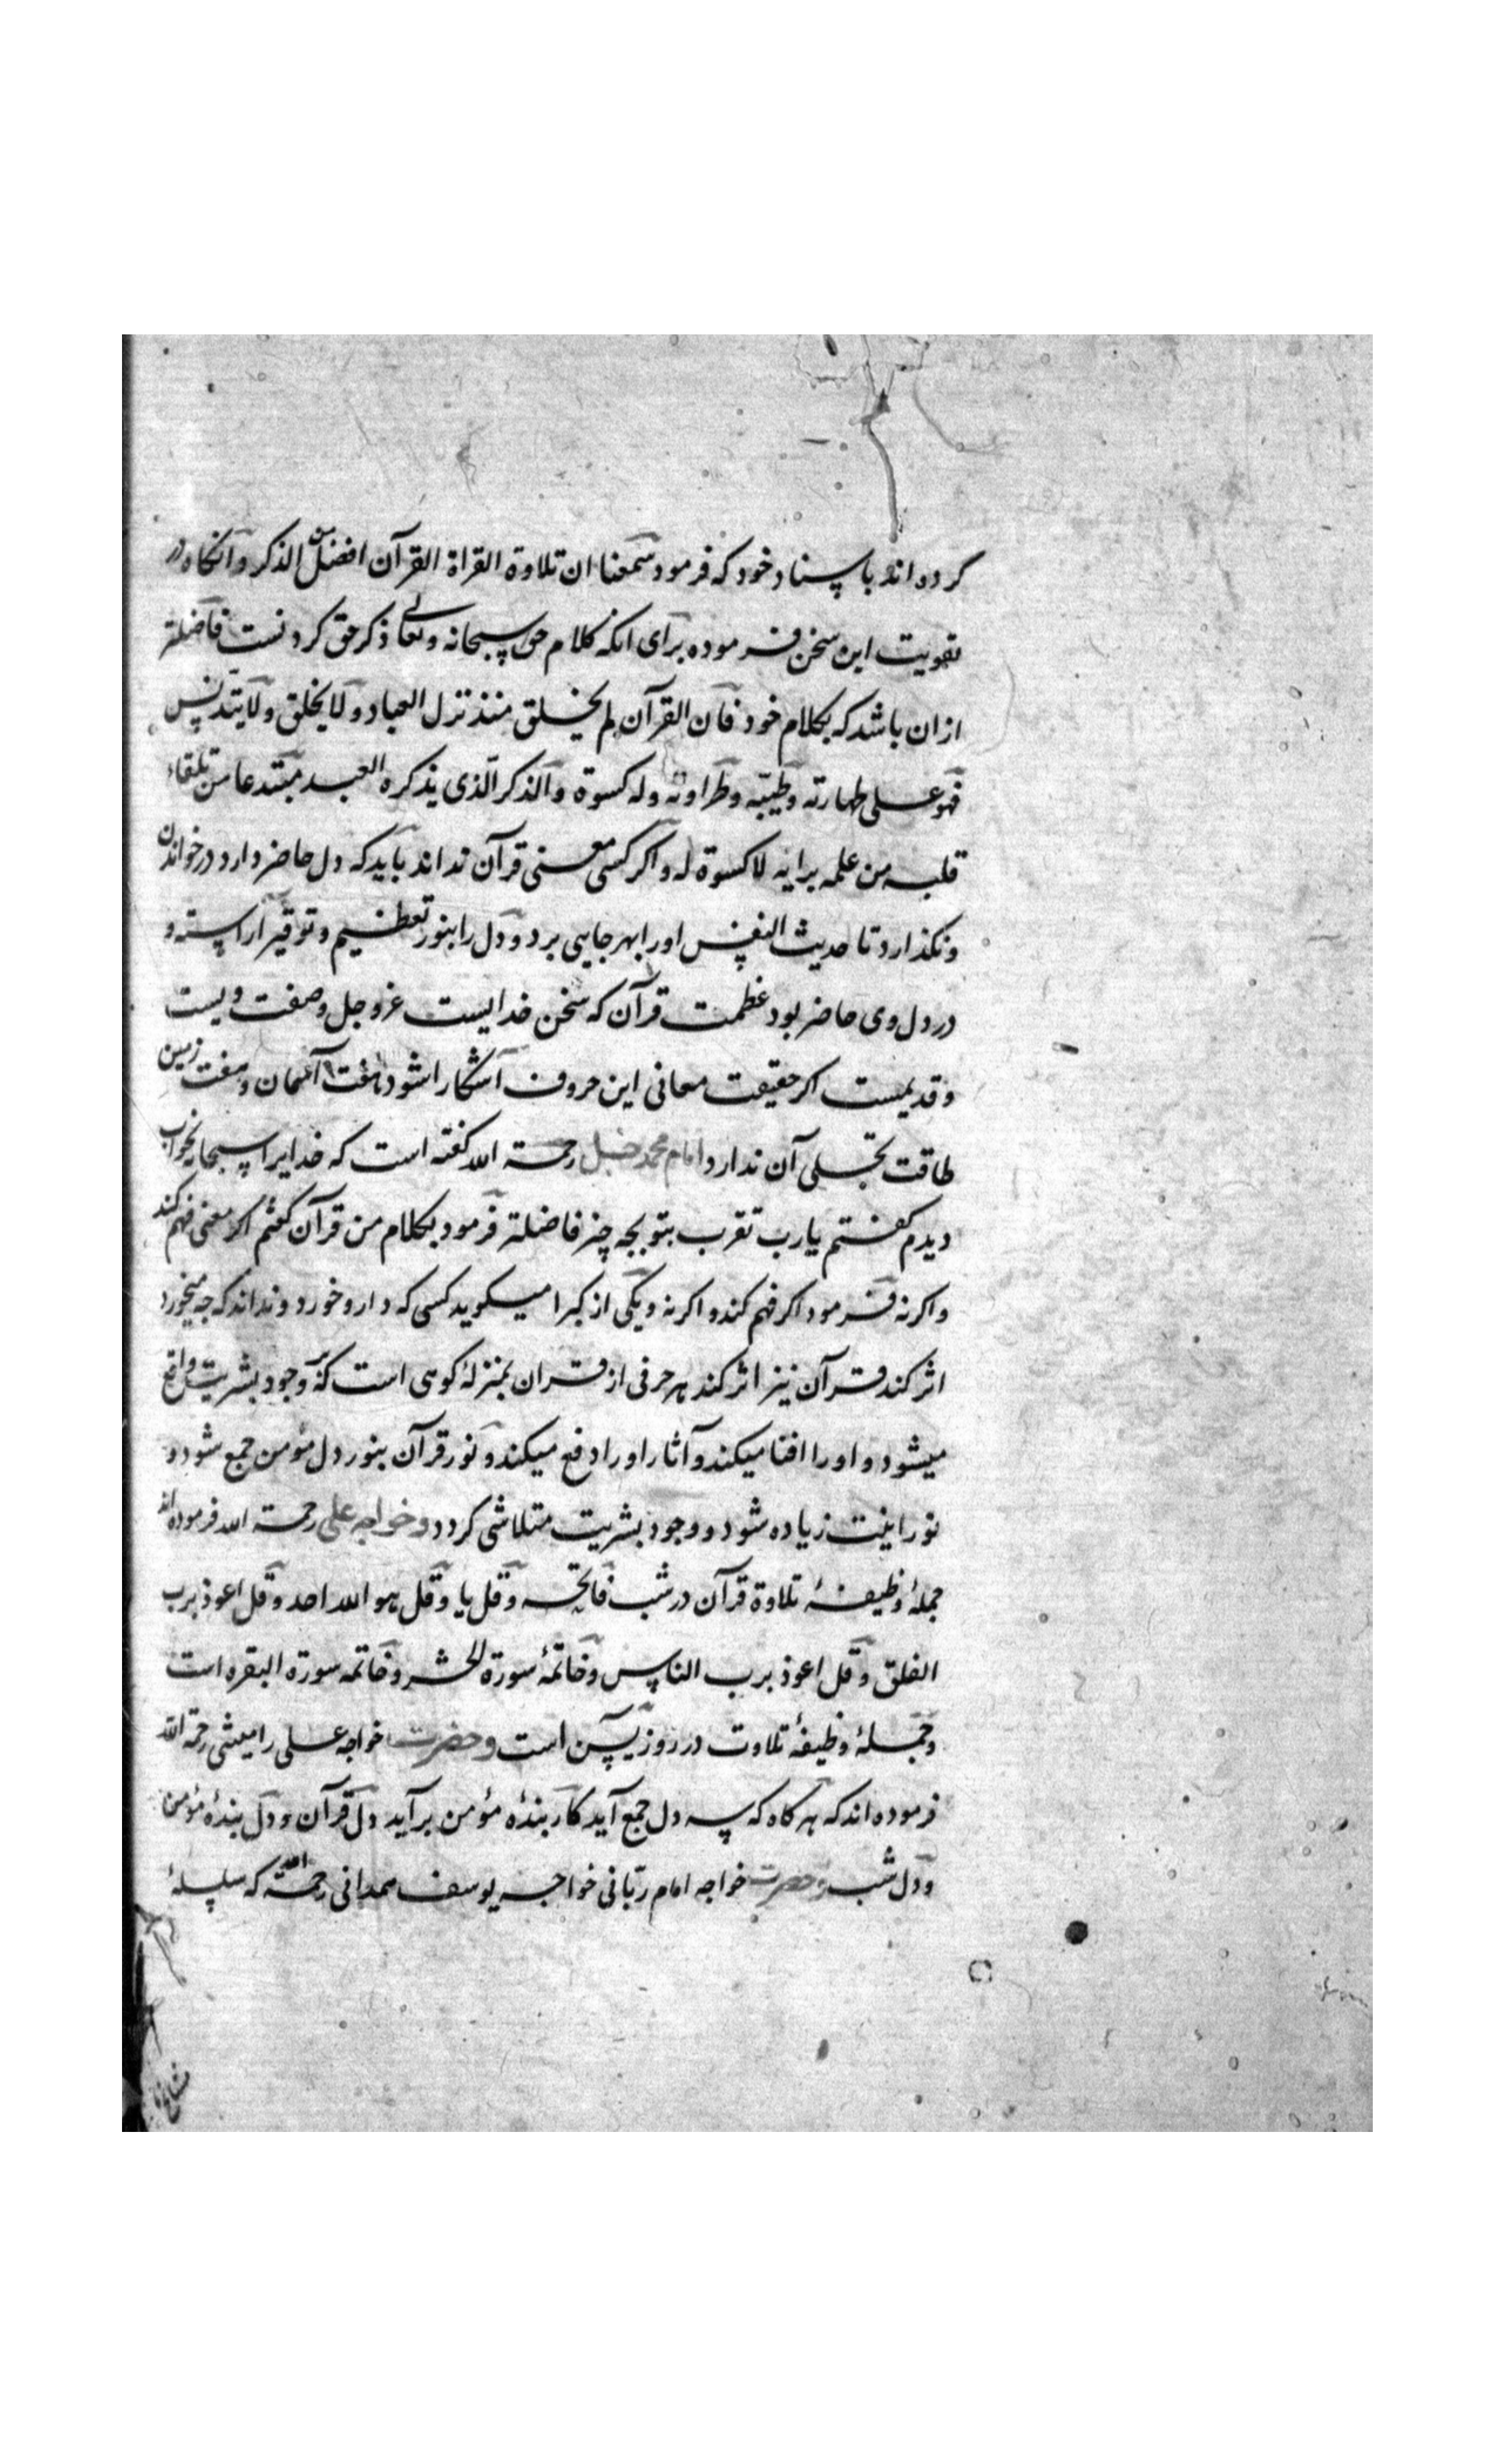 کرده اند باسناد خود که فرمود سمعنا ان تلاوة القراة القرآن افضل من الذکر و آنکاه در
تقویت این سخن فرموده برای انکه کلام حق سبحانه و تعالی ذکر حق کردنست فاضلتر
ازان باشد که بکلام خود فان القرآن لم یخلق منذ نزل العباد و لا یخلق و لا یتدنس
فهو علی طهارته و طیبه و طراوته وله کسوة والذکر الذی یذکره العبد مبتدعا من تلقاء
قلبه من علمه برایه لا کسوة له و اکر کسی معنی قرآن نداند باید که دل حاضر دارد در خواندن
و نکذارد تا حدیث النفس اورا بهر جایی برد و دل را بنور تعظیم و توقیر آراسته و
در دل وی حاضر بود عظمت قرآن که سخن خدایست عزوجل و صفت ویست
و قدیمست اکر حقیقت معانی این حروف آشکارا شود هفت آسمان و هفت زمین
طاقت تجلی آن ندارد امام محمد حنبل رحمة الله کفته است که خدایرا سبحانه بخواب
دیدم کفتم یا رب تقرب بتو بچه چیز فاضلتر فرمود بکلام من قرآن کفتم اکر معنی فهم کند
و اکر نه فرمود اکر فهم کند و اکر نه و یکی از کبرا میکوید کسی که دارو خورد و نداند که چه میخورد
اثر کند قرآن نیز اثر کند هر حرفی از قران بمنزلۀ کوهی است که بر وجود بشریت واقع
میشود و اورا افنا میکند و آثار اورا دفع میکند و نور قرآن بنور دل مؤمن جمع شود و
نورانیت زیاده شود و وجود بشریت متلاشی کردد و خواجه علی رحمة الله فرموده اند
جملۀ وظیفۀ تلاوة قرآن در شب فاتحه و قل یا و قل هو الله احد و قل اعوذ برب
الفلق و قل اعوذ برب الناس و خاتمۀ سورة الحشر و خاتمه سورة البقره است
و جملۀ وظیفۀ تلاوت در روز یس است و حضرت خواجه علی رامیثنی رحمة الله
فرموده اند که هرکاه که سه دل جمع آید کار بندۀ مؤمن برآید دل قرآن و دل بندۀ مؤمن
و دل شب و حضرت خواجه امام ربانی خواجه یوسف همدانی رحمة الله که سلسلۀ
مشایخ